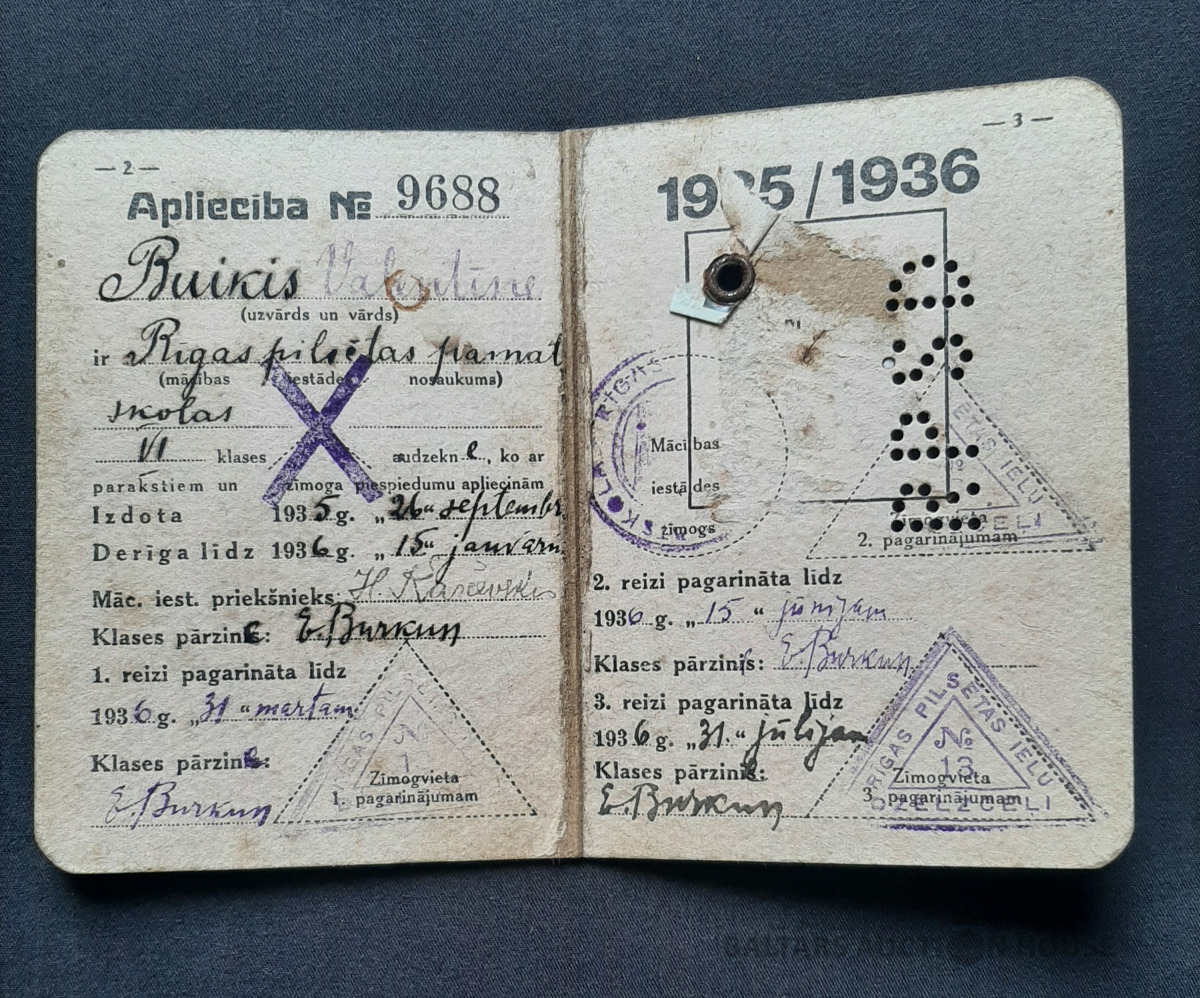 — 2 —
Apliecība № 9688
Buikis Valentīne
(uzvārds un vārds)
ir Rīgas pilsētas pamat
(mācības iestādes nosaukums)
skolas
VI klases audzekne, ko ar
parakstiem un zīmoga piespiedumu apliecinām
Izdota 1935 g. „26“ septembr
Derīga līdz 1936 g. „15“ janvarim
Māc. iest. priekšnieks:
Klases pārzine: E. Burkuņ
1. reizi pagarināta līdz
1936 g. „31“ martam
Klases pārzine:
E. Burkuņ
RIGAS PILS
№
1
Zīmogvieta
1. pagarinājumam
— 3 —
1935/1936
SKOLA RIGAS
Mācības
iestādes
zīmogs
ETAS IELU
DZELZCEĻI
Zīmogvieta
2. pagarinājumam
2. reizi pagarināta līdz
1936 g. „15“ jūnijam
Klases pārzinis: E. Burkuņ
3. reizi pagarināta līdz
1936 g. „31.“ jūlijam
Klases pārzine:
E. Burkuņ
RIGAS PILSETAS IELU
DZELZCEĻI
№
13
Zīmogvieta
3. pagarinājumam
BALTARS AUCTION HOUSE